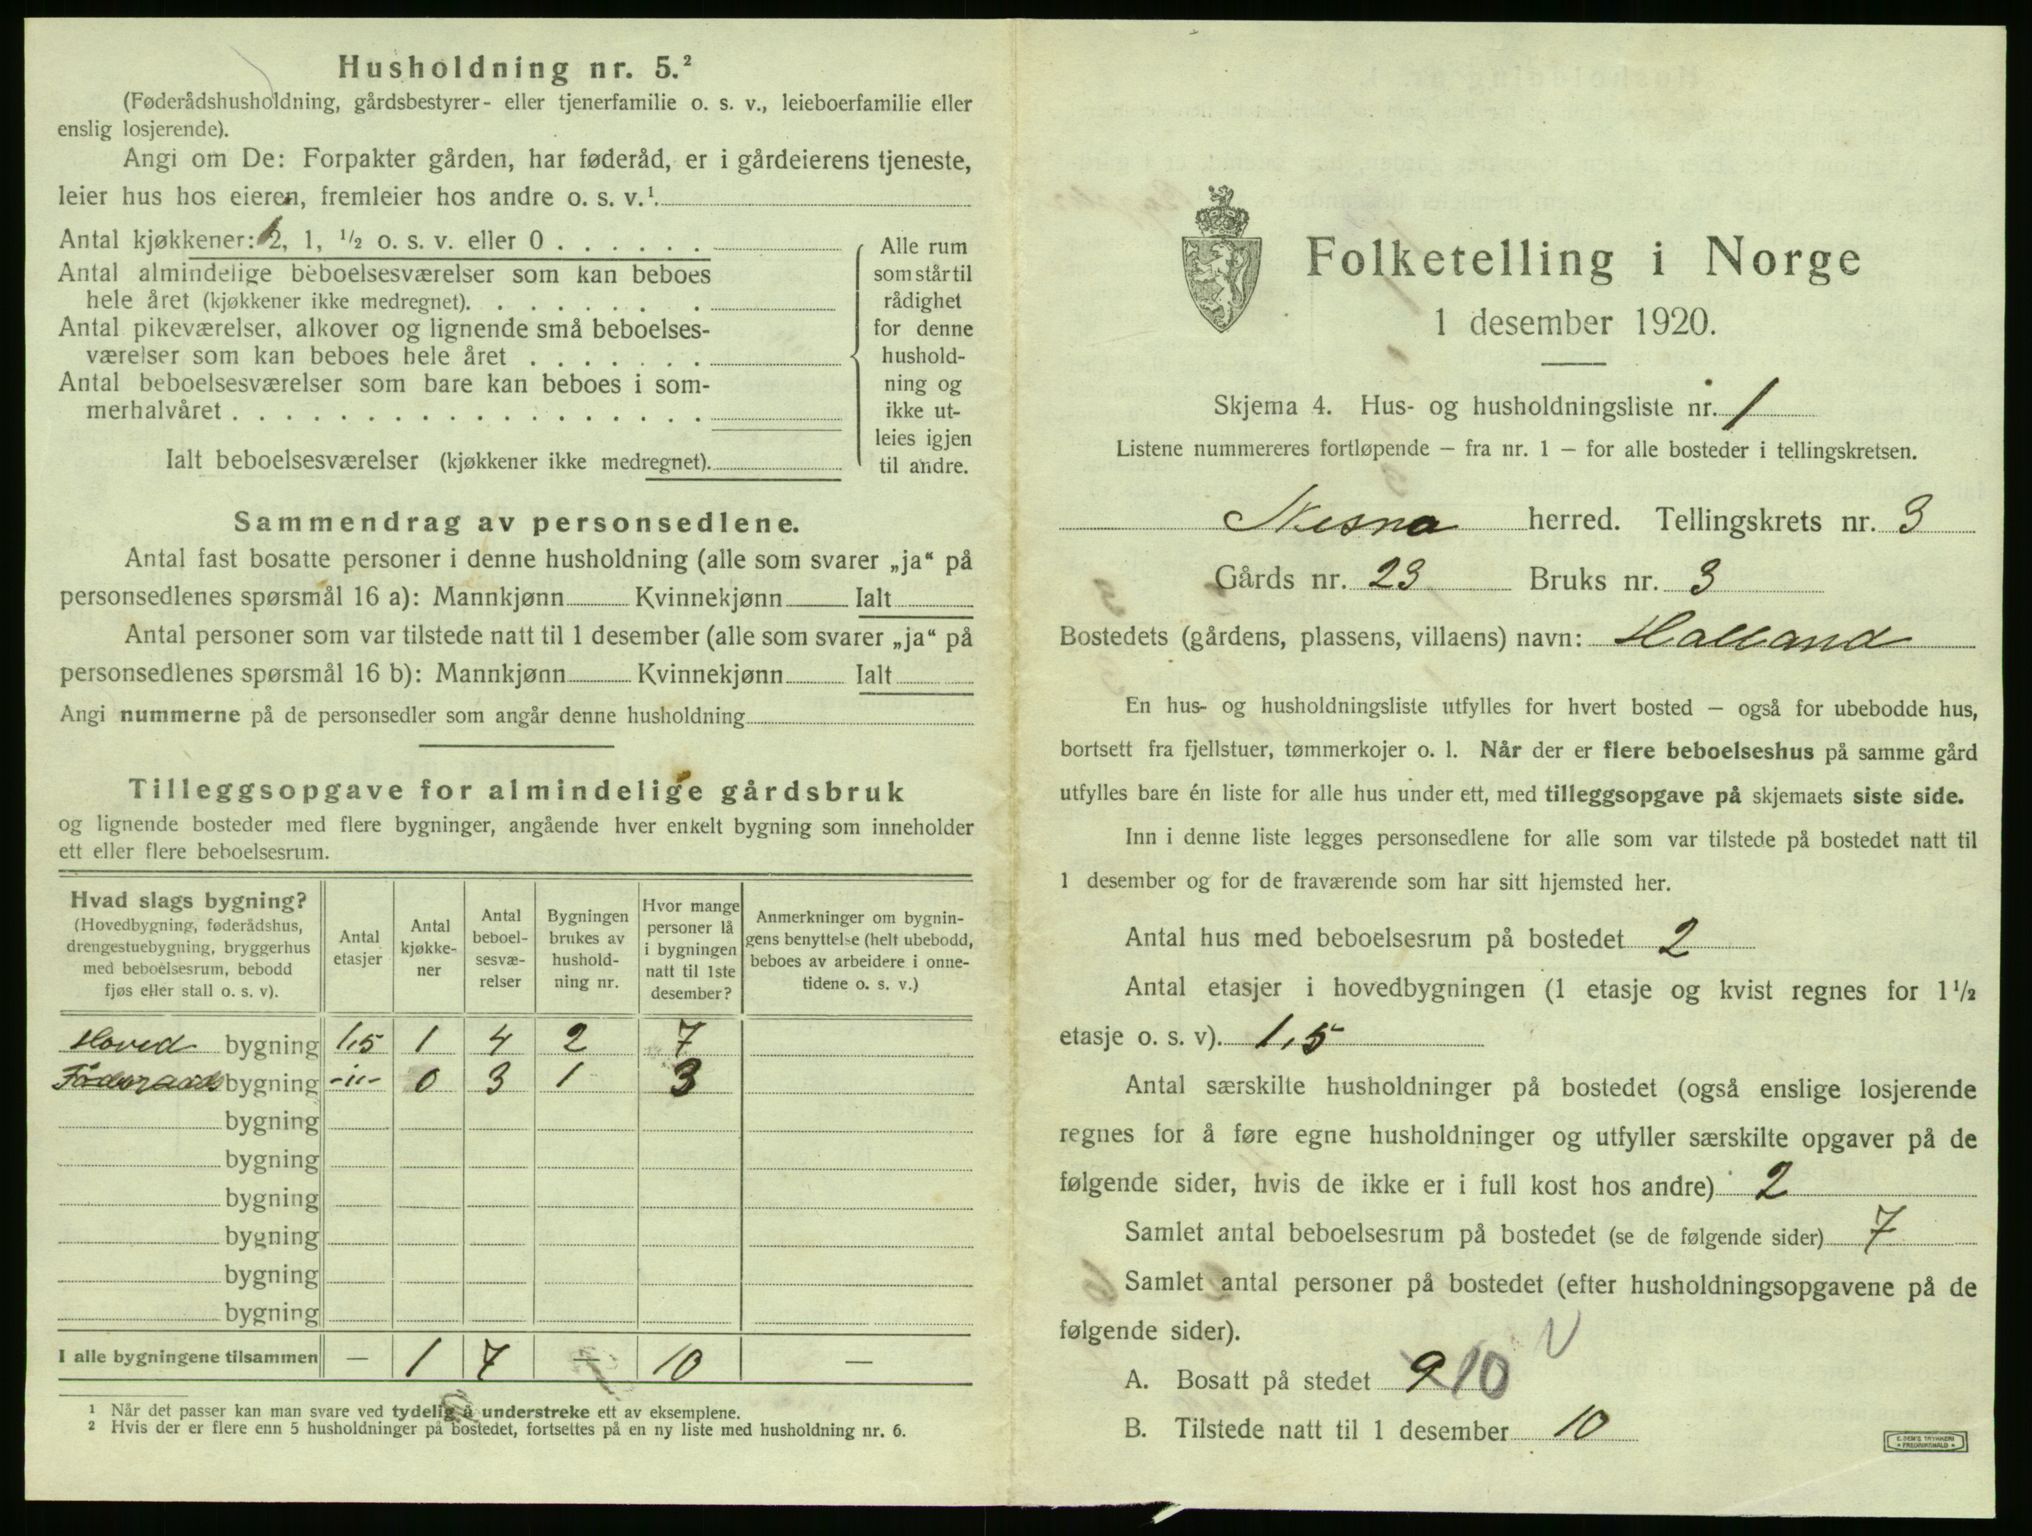 Husholdning nr. 5.²
(Føderådshusholdning, gårdsbestyrer- eller tjenerfamilie o. s. v., leieboerfamilie eller
enslig losjerende).
Angi om De: Forpakter gården, har føderåd, er i gårdeierens tjeneste,
leier hus hos eieren, fremleier hos andre o. s. v.¹
Antal kjøkkener: 2, 1, ½ o. s. v. eller 0
Antal almindelige beboelsesværelser som kan beboes
hele året (kjøkkener ikke medregnet).
Antal pikeværelser, alkover og lignende små beboelses-
værelser som kan beboes hele året
Antal beboelsesværelser som bare kan beboes i som-
merhalvåret
Ialt beboelsesværelser (kjøkkener ikke medregnet).
Alle rum
som står til
rådighet
for denne
hushold-
ning og
ikke ut-
leies igjen
til andre.
Sammendrag av personsedlene.
Antal fast bosatte personer i denne husholdning (alle som svarer „ja“ på
personsedlenes spørsmål 16 a): Mannkjønn Kvinnekjønn Ialt
Antal personer som var tilstede natt til 1 desember (alle som svarer „ja“ på
personsedlenes spørsmål 16 b): Mannkjønn Kvinnekjønn Ialt
Angi nummerne på de personsedler som angår denne husholdning
Tilleggsopgave for almindelige gårdsbruk
og lignende bosteder med flere bygninger, angående hver enkelt bygning som inneholder
ett eller flere beboelsesrum.
Hvad slags bygning?
(Hovedbygning, føderådshus,
drengestuebygning, bryggerhus
med beboelsesrum, bebodd
fjøs eller stall o. s. v).
Antal
etasjer
Antal
kjøkke-
ner
Antal
beboel-
sesvæ-
relser
Bygningen
brukes av
hushold-
ning nr.
Hvor mange
personer lå
i bygningen
natt til 1ste
desember?
Anmerkninger om bygnin-
gens benyttelse (helt ubebodd,
beboes av arbeidere i onne-
tidene o. s. v.)
Hoved bygning 1,5 1 4 2 7
Föderaads bygning -"- 0 3 1 3
bygning
bygning
bygning
bygning
bygning
bygning
I alle bygningene tilsammen — 1 7 — 10 —
¹ Når det passer kan man svare ved tydelig å understreke ett av eksemplene.
² Hvis der er flere enn 5 husholdninger på bostedet, fortsettes på en ny liste med husholdning nr. 6.
Folketelling i Norge
1 desember 1920.
Skjema 4. Hus- og husholdningsliste nr. 1
Listene nummereres fortløpende — fra nr. 1 — for alle bosteder i tellingskretsen.
Nesna herred. Tellingskrets nr. 3
Gårds nr. 23 Bruks nr. 3
Bostedets (gårdens, plassens, villaens) navn: Haland
En hus- og husholdningsliste utfylles for hvert bosted — også for ubebodde hus,
bortsett fra fjellstuer, tømmerkojer o. l. Når der er flere beboelseshus på samme gård
utfylles bare én liste for alle hus under ett, med tilleggsopgave på skjemaets siste side.
Inn i denne liste legges personsedlene for alle som var tilstede på bostedet natt til
1 desember og for de fraværende som har sitt hjemsted her.
Antal hus med beboelsesrum på bostedet 2
Antal etasjer i hovedbygningen (1 etasje og kvist regnes for 1½
etasje o. s. v). 1,5
Antal særskilte husholdninger på bostedet (også enslige losjerende
regnes for å føre egne husholdninger og utfyller særskilte opgaver på de
følgende sider, hvis de ikke er i full kost hos andre) 2
Samlet antal beboelsesrum på bostedet (se de følgende sider) 7
Samlet antal personer på bostedet (efter husholdningsopgavene på de
følgende sider).
A. Bosatt på stedet 9 10
B. Tilstede natt til 1 desember 10